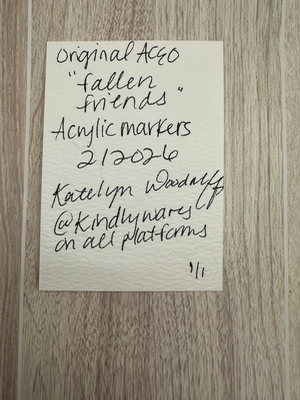 Original ACEO
"fallen
friends"
Acrylic markers
2/2026
Katelyn Woodruff
@Kindlywares
on all platforms
1/1